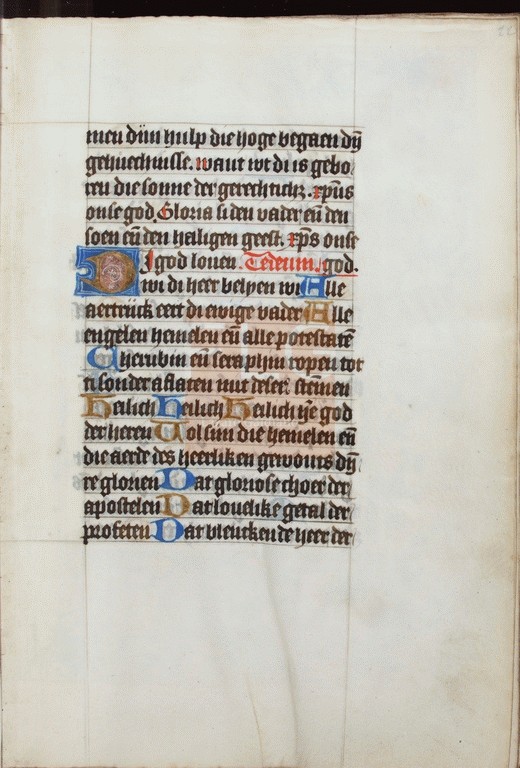 men dijn hulp die hoge vegaen dÿ
gehuechnisse. want wt di is gebo
ren die sonne der gerechticht. xp̄us
onse god. Gloria si den vader en̄ den
soen en̄ den heiligen geest. xp̄s onse
DI god louen. Te deum. god.
wi di heer belyen wi Alle
aertrijck eert di ewige vader Alle
engelen hemelen en̄ alle potestatē
Cherubin en̄ seraphin ropen tot
ti sonder aflaten mit deser stemen
Heilich Heilich Heilich here god
der heren Vol sijn die hemelen en̄
die aerde des heerliken gewouts dÿ
re glorien Dat gloriose choer der
apostelen Dat louelike getal der
profeten Dat blenckende heer der